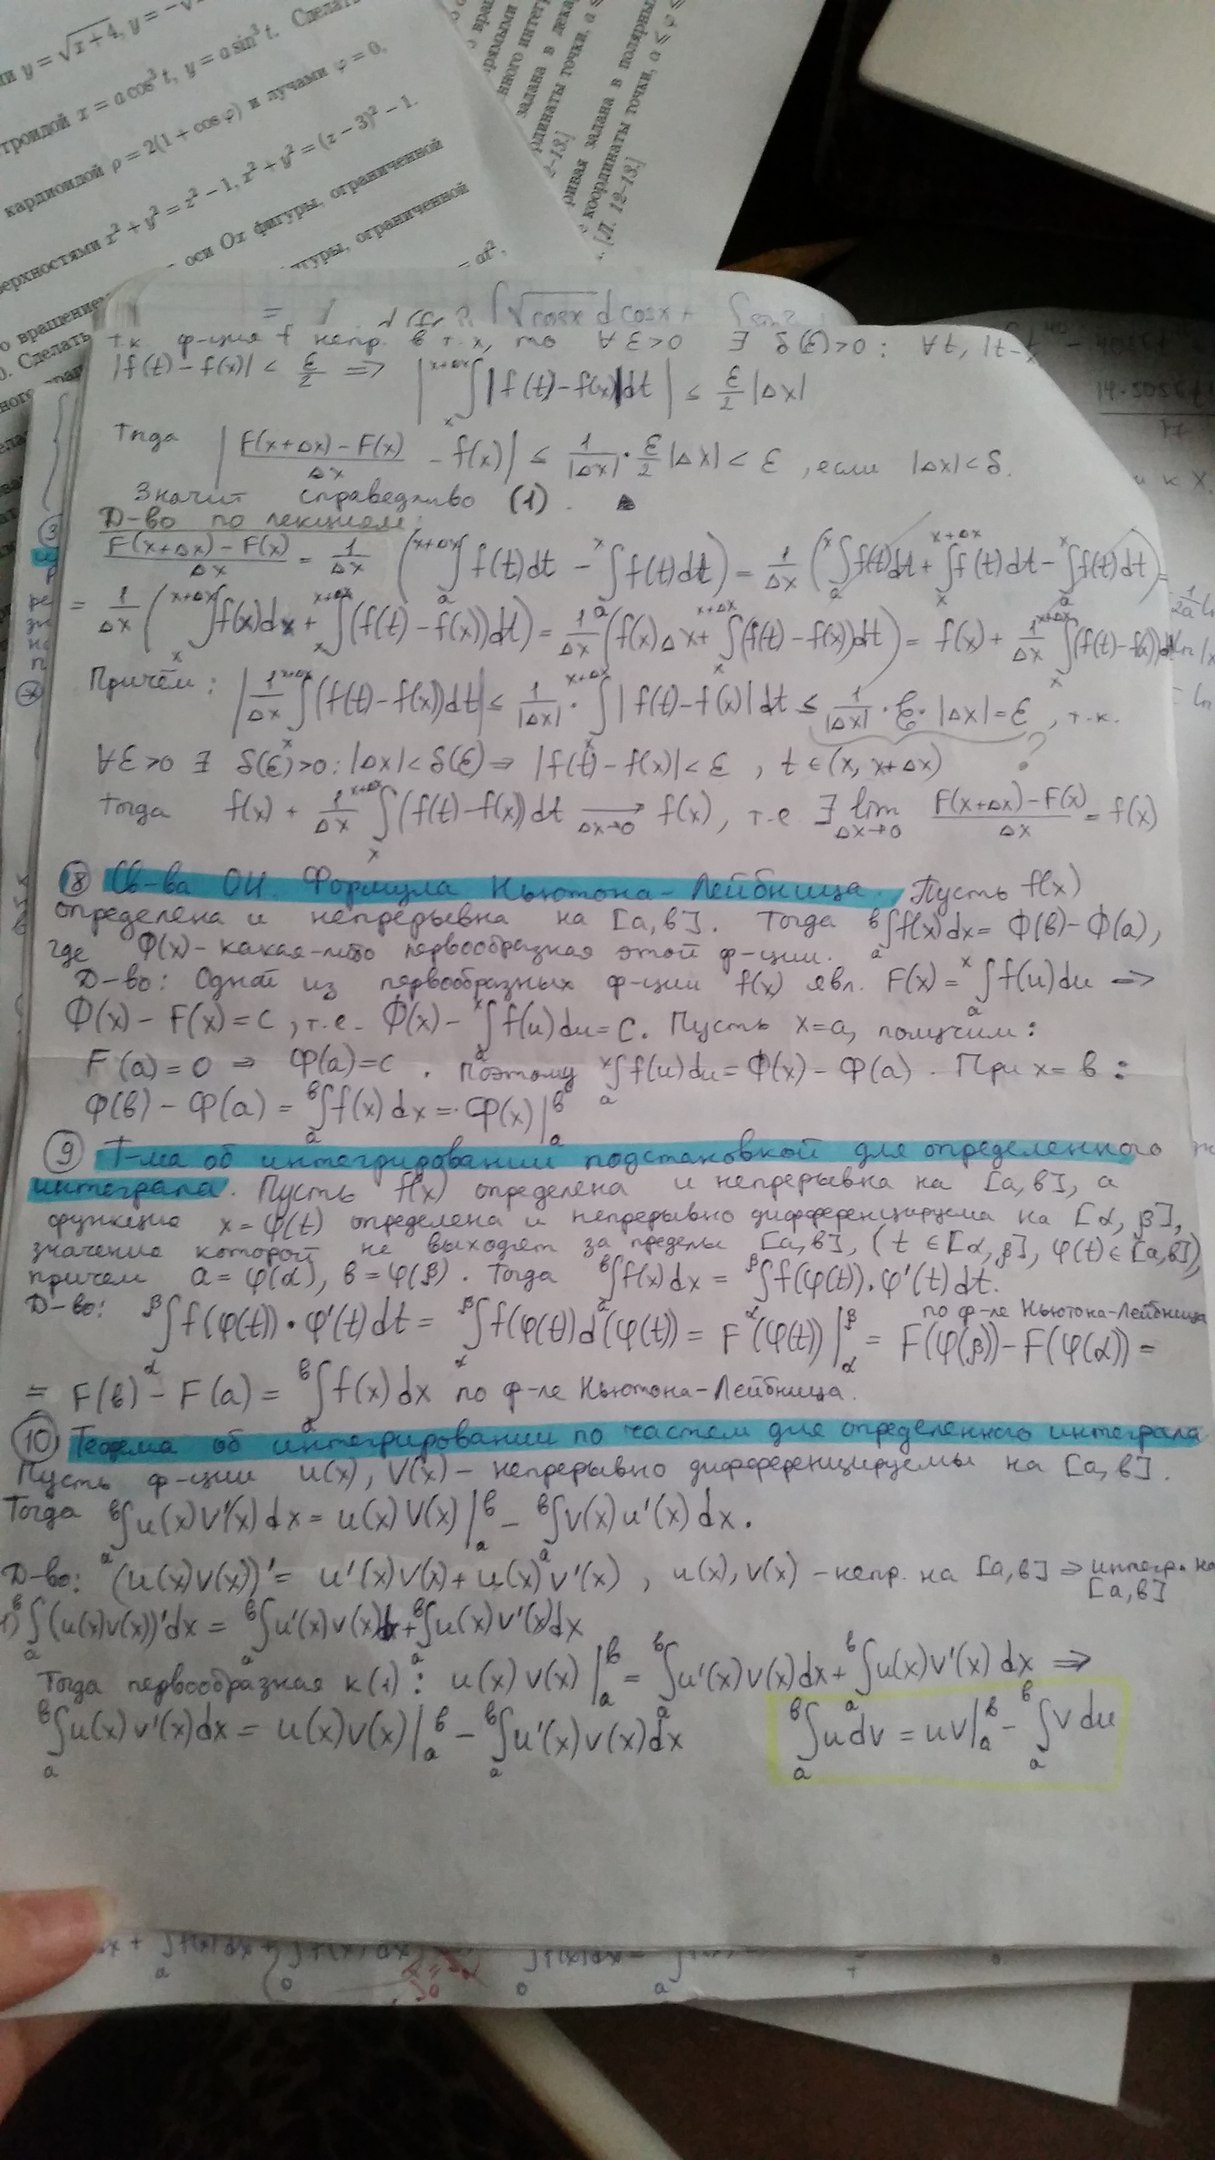 ми y = √x+4, y = −√
троидой x = a cos³ t, y = a sin³ t. Сделать
кардиоидой ρ = 2(1 + cos φ) и лучами φ = 0,
верхностями x² + y² = z² − 1, x² + y² = (z − 3)² − 1.
о вращение оси Ox фигуры, ограниченной
0. Сделать гуры, ограниченной
− at²,
задана в декар
ривая задана в полярны
координаты точки, a ≤ φ ≤
[Л. 12–13.]
∫√cosx d cosx +
т.к. ф-ция f непр. в т. x, то ∀ε>0 ∃ δ(ε)>0 : ∀t, |t-x
|f(t) - f(x)| < ε/2 => | x+Δx ∫ x |f(t)-f(x)|dt | ≤ ε/2 |Δx|
Тогда | (F(x+Δx) - F(x))/Δx - f(x) | ≤ 1/|Δx| · ε/2 |Δx| < ε, если |Δx| < δ.
Значит справедливо (1).
Д-во по лекциям:
(F(x+Δx) - F(x))/Δx = 1/Δx ( x+Δx ∫ a f(t)dt - x ∫ a f(t)dt ) = 1/Δx ( x ∫ a f(t)dt + x+Δx ∫ x f(t)dt - x ∫ a f(t)dt ) =
= 1/Δx ( x+Δx ∫ x f(x)dx + x+Δx ∫ x (f(t) - f(x))dt ) = 1/Δx ( f(x)Δx + x+Δx ∫ x (f(t) - f(x))dt ) = f(x) + 1/Δx x+Δx ∫ x (f(t)-f(x))dt
Причём: | 1/Δx x+Δx ∫ x (f(t)-f(x))dt | ≤ 1/|Δx| · x+Δx ∫ x |f(t)-f(x)|dt ≤ 1/|Δx| · ε · |Δx| = ε, т.к.
∀ε>0 ∃ δ(ε)>0: |Δx| < δ(ε) => |f(t) - f(x)| < ε, t ∈ (x, x+Δx) ?
Тогда f(x) + 1/Δx x+Δx ∫ x (f(t)-f(x))dt ⟶ Δx→0 f(x), т.е ∃ lim Δx→0 (F(x+Δx)-F(x))/Δx = f(x)
⑧ Св-ва ОИ. Формула Ньютона-Лейбница. Пусть f(x)
определена и непрерывна на [a,b]. Тогда b ∫ a f(x)dx = Φ(b)-Φ(a),
где Φ(x) - какая-либо первообразная этой ф-ции.
Д-во: Одной из первообразных ф-ции f(x) явл. F(x) = x ∫ a f(u)du =>
Φ(x) - F(x) = C, т.е. Φ(x) - x ∫ a f(u)du = C. Пусть x=a, получим:
F(a) = 0 => Φ(a)=C. Поэтому x ∫ a f(u)du = Φ(x) - Φ(a). При x = b:
Φ(b) - Φ(a) = b ∫ a f(x)dx = Φ(x)|ᵇₐ
⑨ Т-ма об интегрировании подстановкой для определенного
интеграла. Пусть f(x) определена и непрерывна на [a,b], а
функция x = φ(t) определена и непрерывно дифференцируема на [α, β],
значение которой не выходят за пределы [a,b], (t ∈ [α,β], φ(t) ∈ [a,b]),
причем a = φ(α), b = φ(β). Тогда b ∫ a f(x)dx = β ∫ α f(φ(t))·φ'(t)dt.
Д-во: β ∫ α f(φ(t))·φ'(t)dt = β ∫ α f(φ(t))d(φ(t)) = F(φ(t))|ᵝ_α = по ф-ле Ньютона-Лейбница F(φ(β)) - F(φ(α)) =
= F(b) - F(a) = b ∫ a f(x)dx по ф-ле Ньютона-Лейбница.
⑩ Теорема об интегрировании по частям для определенного интеграла
Пусть ф-ции u(x), V(x) - непрерывно дифференцируемы на [a,b].
Тогда b ∫ a u(x)V'(x)dx = u(x)V(x)|ᵇₐ - b ∫ a V(x)u'(x)dx.
Д-во: (u(x)v(x))' = u'(x)v(x) + u(x)v'(x), u(x), v(x) - непр. на [a,b] => интегр. на [a,b]
1) b ∫ a (u(x)v(x))'dx = b ∫ a u'(x)v(x)dx + b ∫ a u(x)v'(x)dx
Тогда первообразная к (1): u(x)v(x)|ᵇₐ = b ∫ a u'(x)v(x)dx + b ∫ a u(x)v'(x)dx =>
b ∫ a u(x)v'(x)dx = u(x)v(x)|ᵇₐ - b ∫ a u'(x)v(x)dx
b ∫ a u dv = uv|ᵇₐ - b ∫ a v du